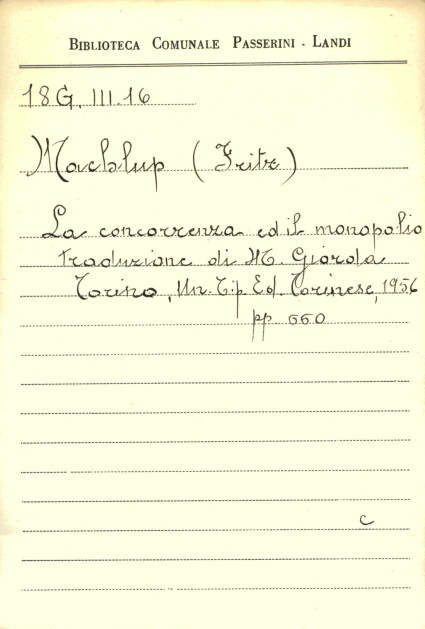 BIBLIOTECA COMUNALE PASSERINI - LANDI
18G. III. 16
Machlup (Fritz)
La concorrenza ed il monopolio
traduzione di M. Giorda
Torino, Un. Tip. Ed. Torinese, 1956
pp. 660
c